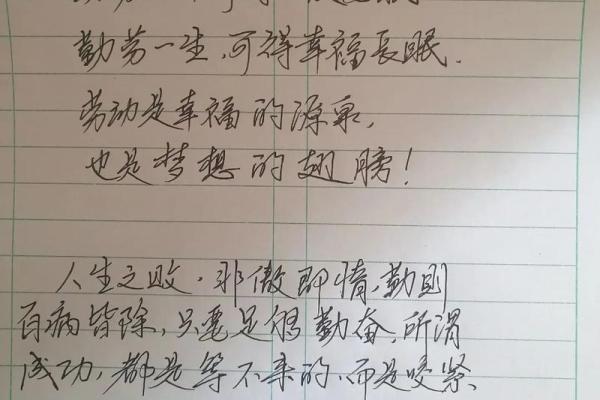 勤劳一生,可得幸福长眠.
劳动是幸福的源泉,
也是梦想的翅膀!
人生之败.非傲即惰,勤则
百病皆除,只要足够勤奋,所谓
成功,都是等不来的,而是咬紧、